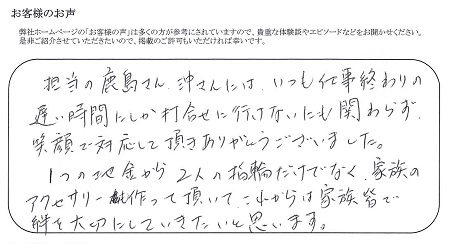 お客様のお声
弊社ホームページの「お客様の声」は多くの方が参考にされていますので、貴重な体験談やエピソードなどをお聞かせください。
是非ご紹介させていただきたいので、掲載のご許可もいただければ幸いです。
担当の鹿島さん、沖さんには、いつも仕事終わりの
遅い時間にしか打合せに行けないにも関わらず、
笑顔で対応して頂きありがとうございました。
1つの地金から2人の指輪だけでなく、家族の
アクセサリー作って頂いて、これからは家族皆で
絆を大切にしていきたいと思います。